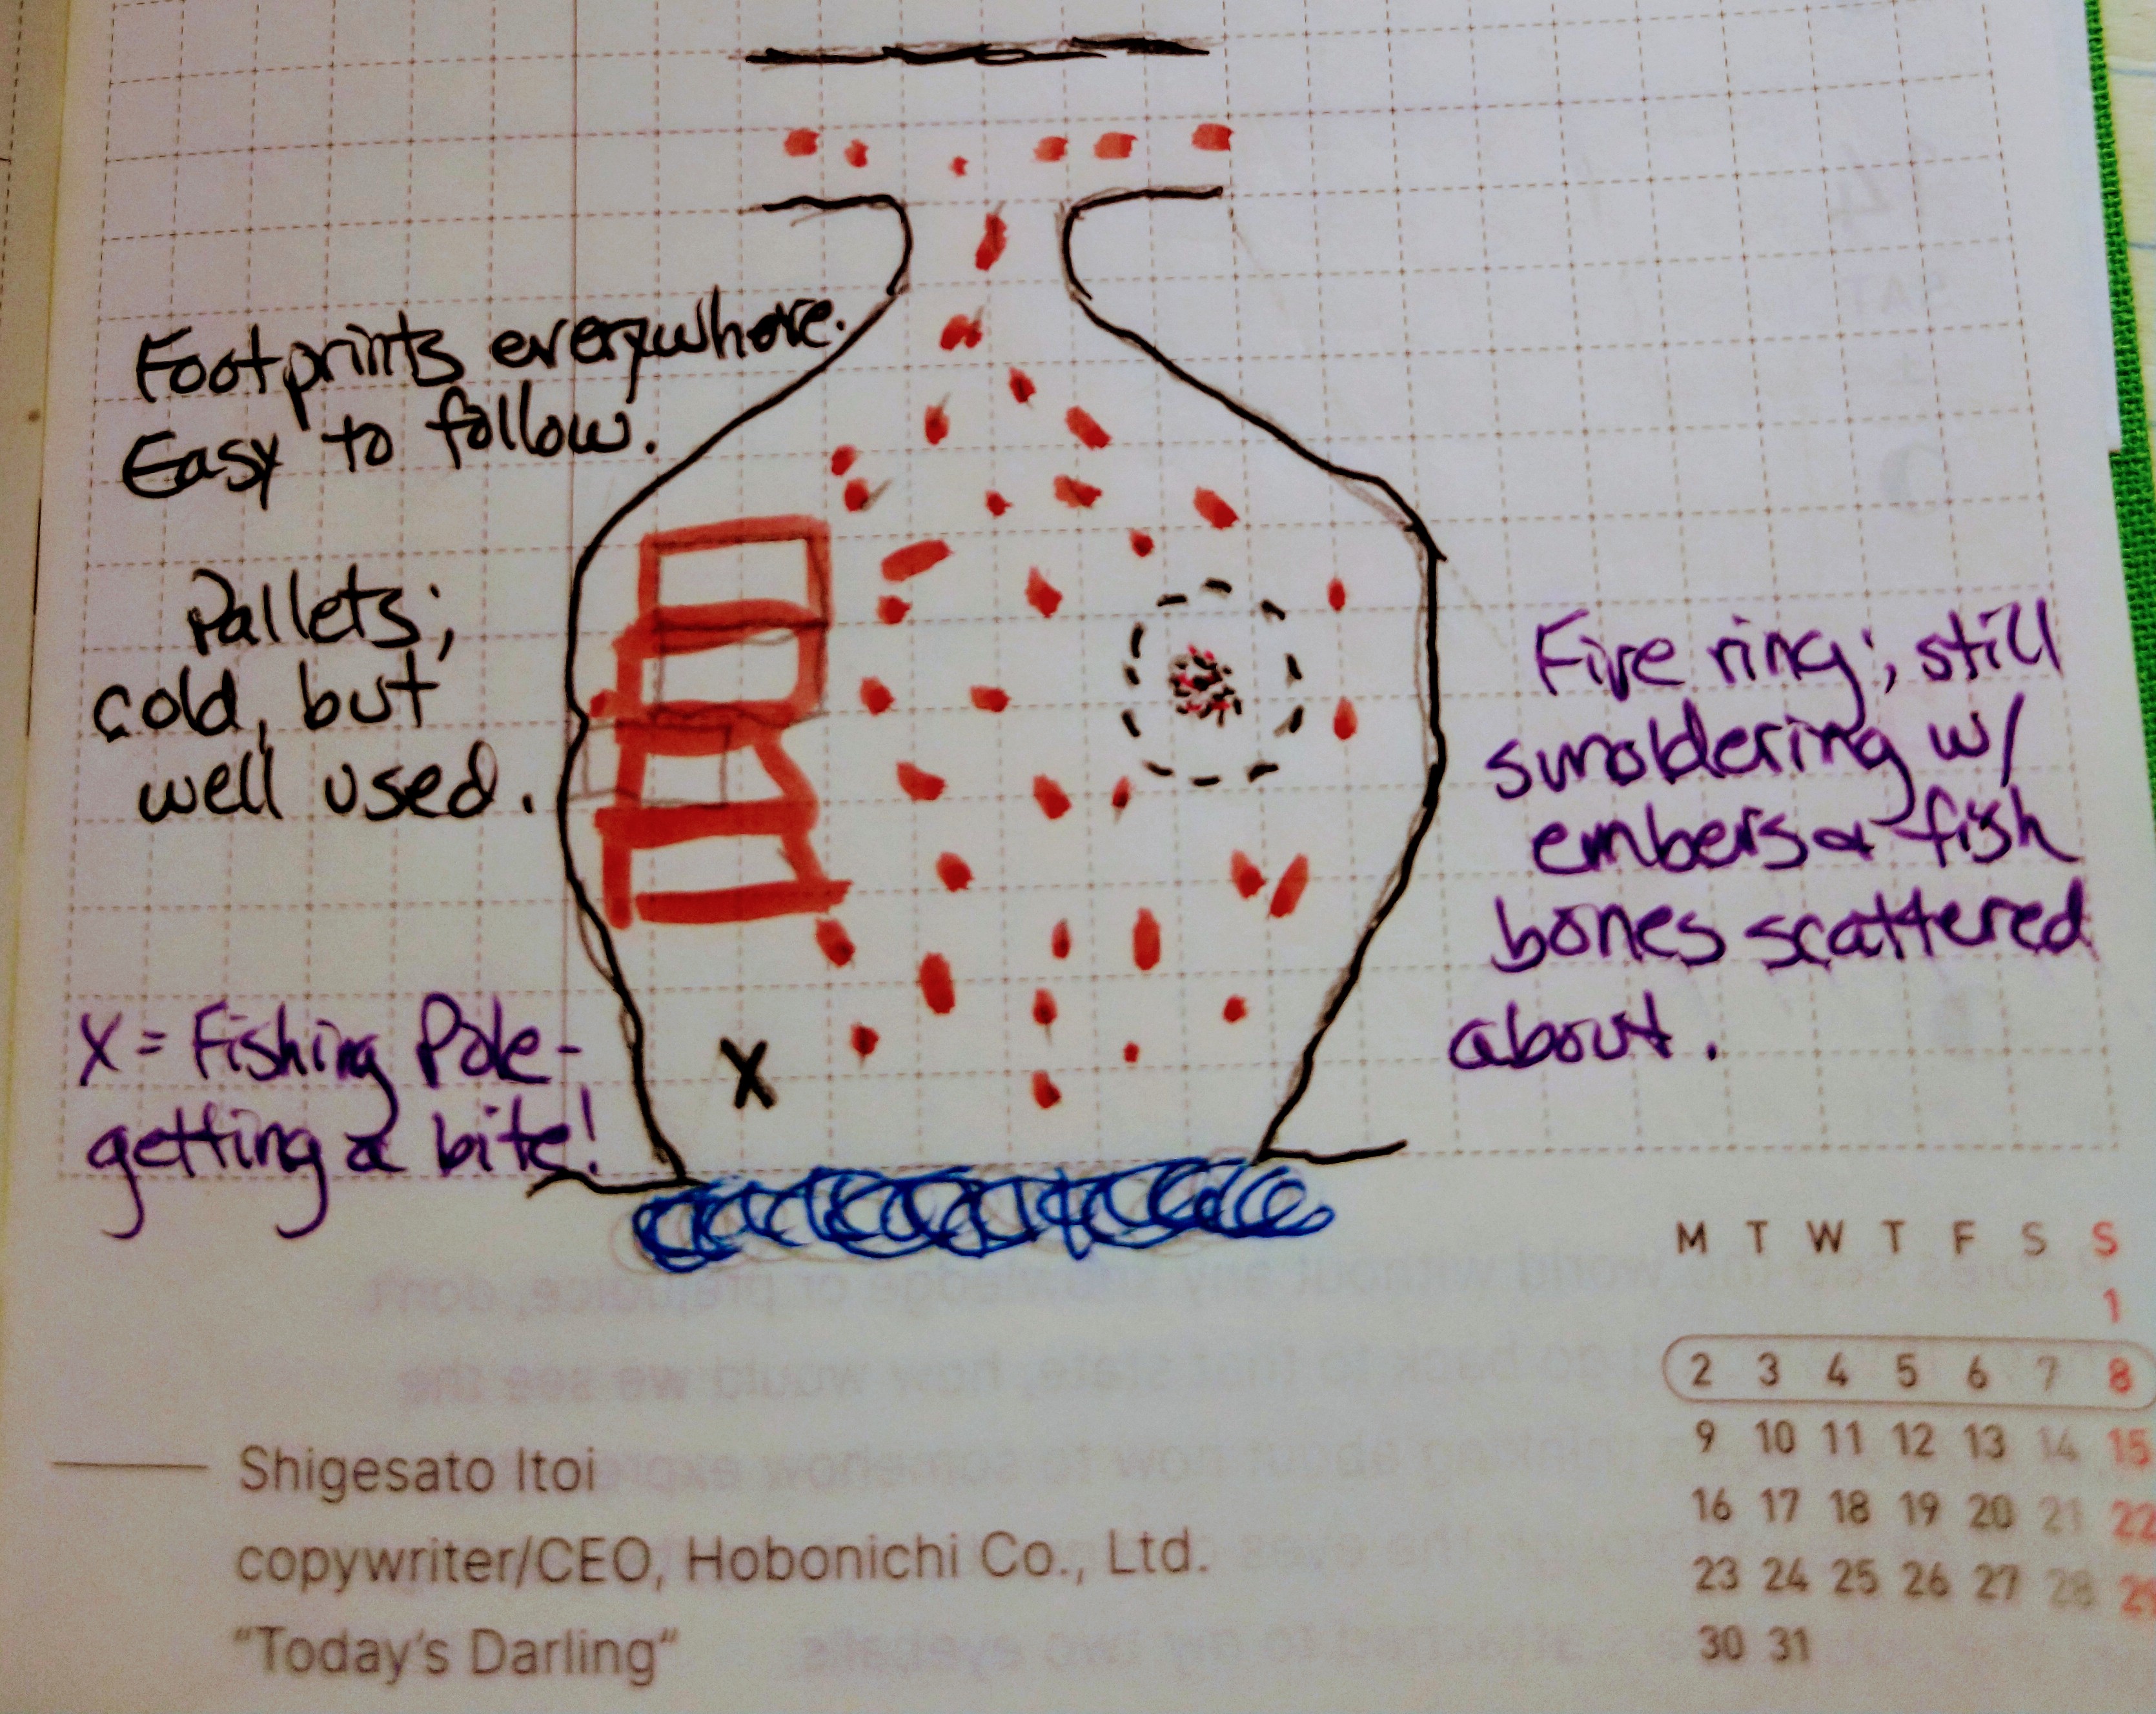 Footprints everywhere.
Easy to follow.
Pallets;
cold, but
well used.
Fire ring; still
smoldering w/
embers & fish
bones scattered
about.
X = Fishing Pole-
getting a bite!
X
M T W T F S S
1
2 3 4 5 6 7 8
9 10 11 12 13 14 15
16 17 18 19 20 21 22
23 24 25 26 27 28 29
30 31
Shigesato Itoi
copywriter/CEO, Hobonichi Co., Ltd.
"Today's Darling"